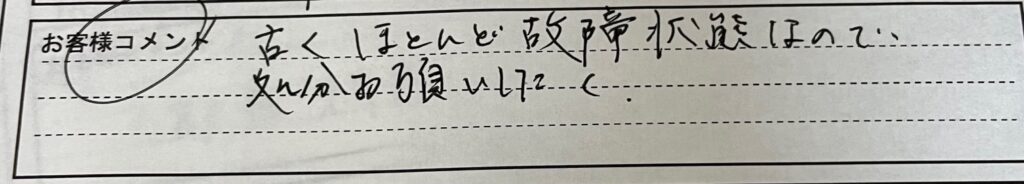 お客様コメント 古くほとんど故障状態なので、
処分お願いしたく.